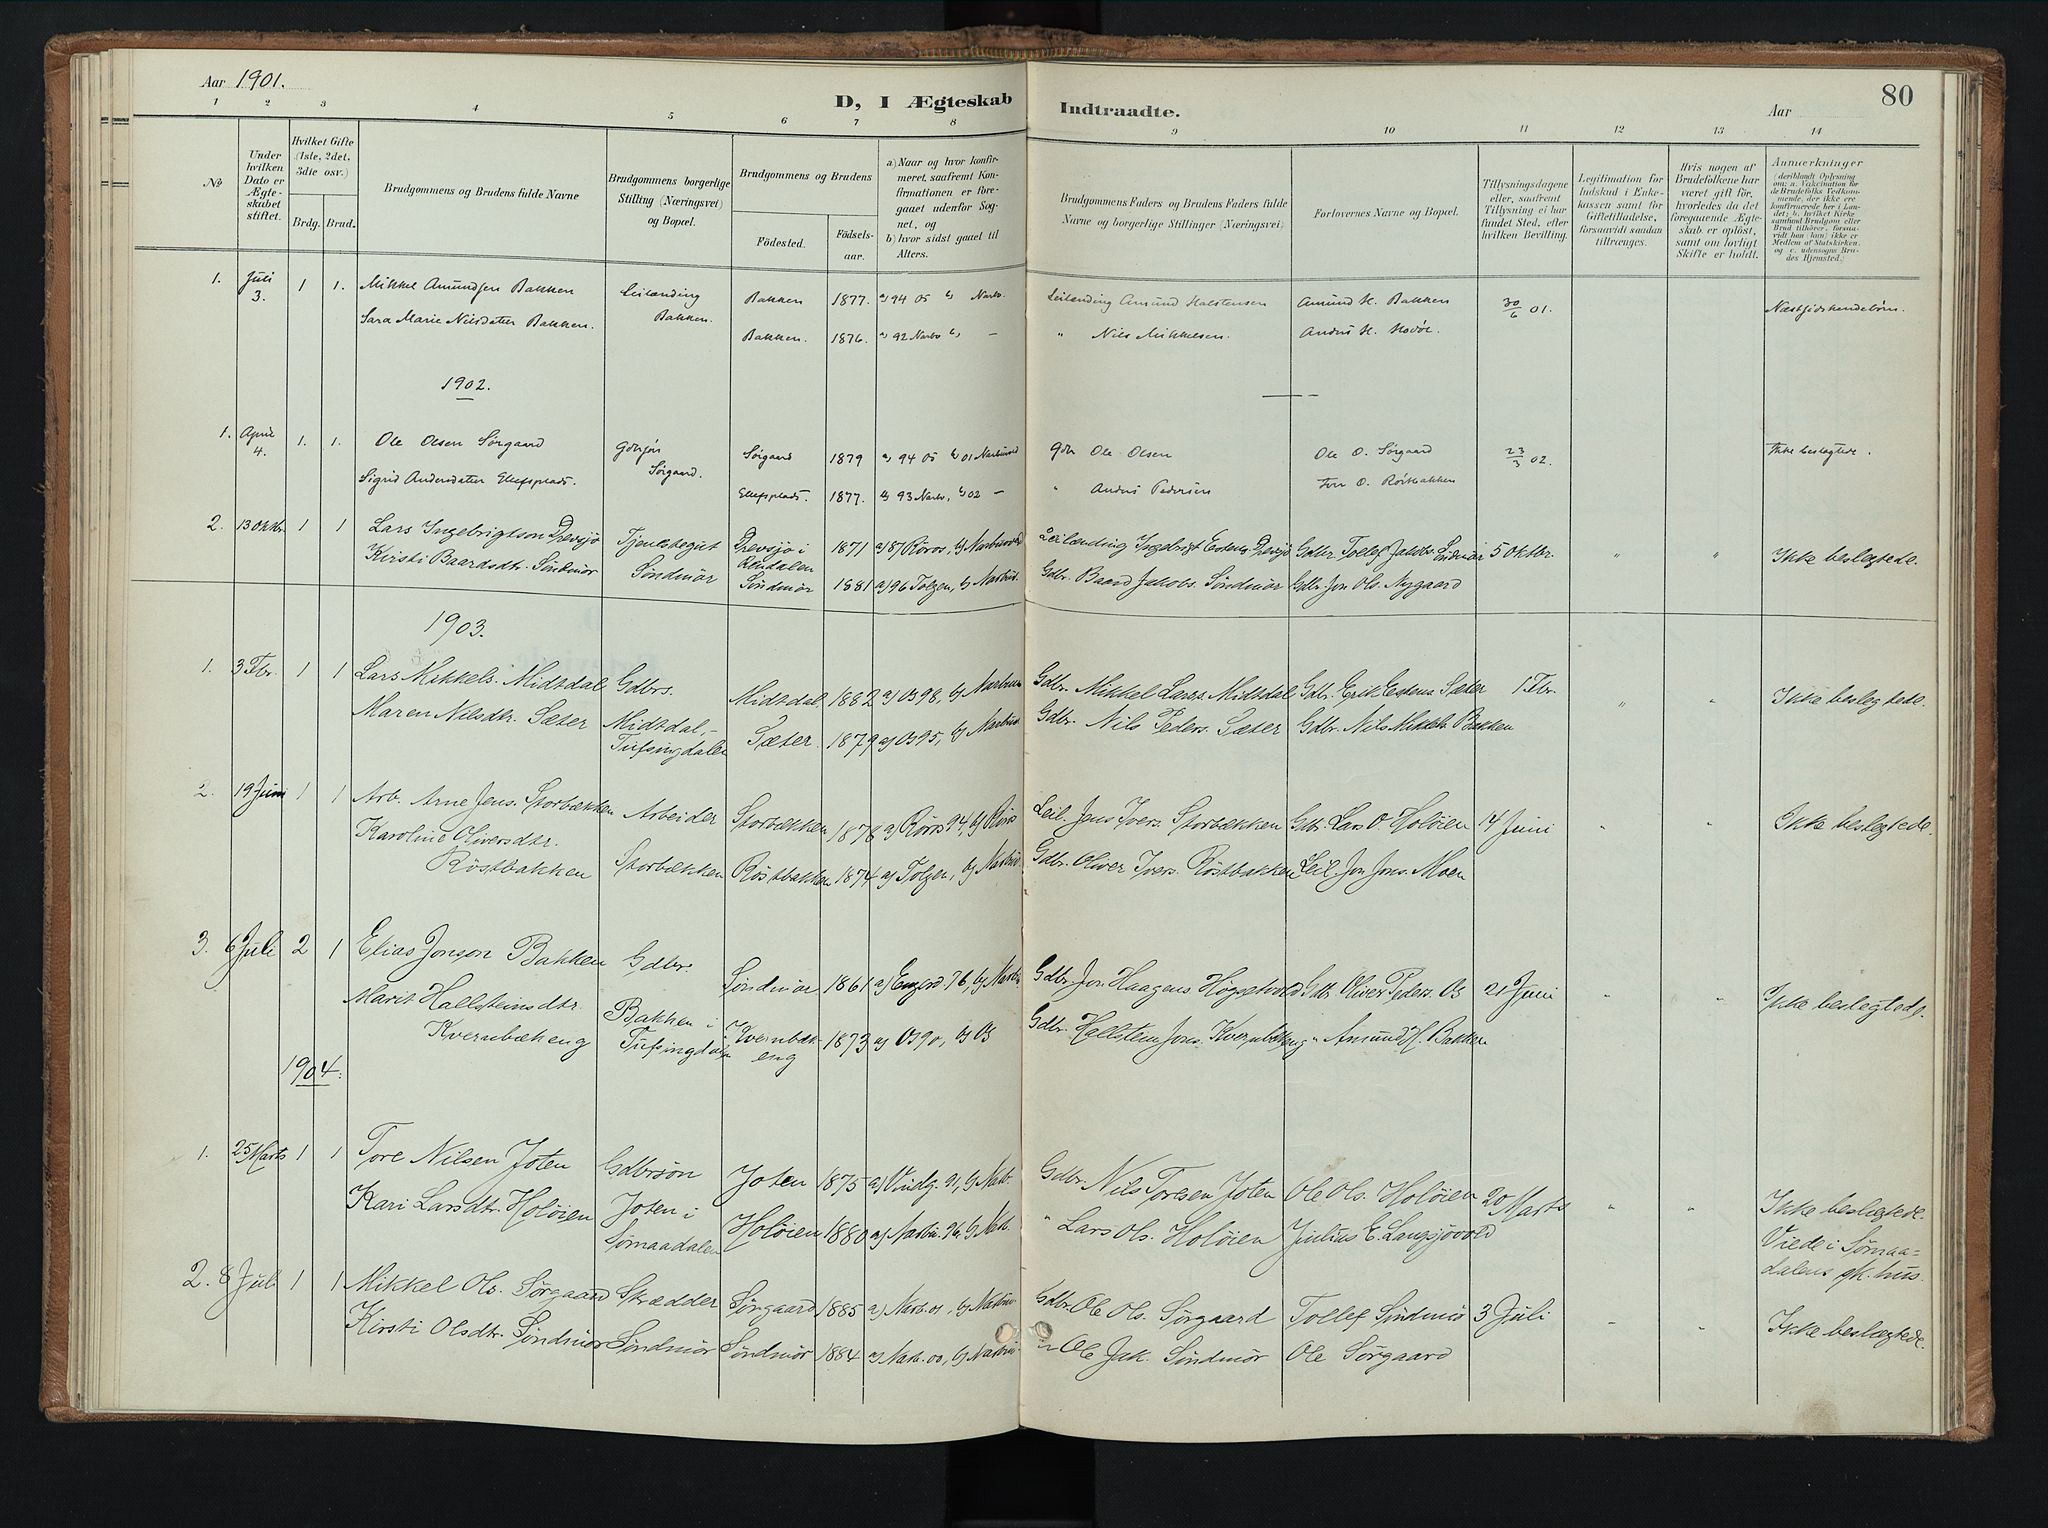 Aar 1901.
D, I Ægteskab Indtraadte.
Aar
80
1 2 3 4 5 6 7 8 9 10 11 12 13 14
№
Under hvilken Dato er Ægteskabet stiftet.
Hvilket Gifte (1ste, 2det, 3die osv.)
Brdg. Brud.
Brudgommens og Brudens fulde Navne
Brudgommens borgerlige Stilling (Næringsvei) og Bopæl.
Brudgommens og Brudens
Födested.
Födselsaar.
a) Naar og hvor konfirmeret, saafremt Konfirmationen er foregaaet udenfor Sognet, og
b) hvor sidst gaaet til Alters.
Brudgommens Faders og Brudens Faders fulde Navne og borgerlige Stillinger (Næringsvei)
Forlovernes Navne og Bopæl.
Tillysningsdagene eller, saafremt Tillysning ei har fundet Sted, efter hvilken Bevilling.
Legitimation for Indskud i Enkekassen samt for Giftetilladelse, forsaavidt saadan tiltrænges.
Hvis nogen af Brudefolkene har været gift før, hvorledes da det foregaaende Ægteskab er oplöst, samt om lovligt Skifte er holdt.
Anmærkninger (deriblandt Oplysning om: a. Vakcination for de Brudefolks Vedkommende, der ikke ere konfirmerede her i Landet; b. hvilket Kirkesamfund Brudgom eller Brud tilhörer, forsaavidt han (hun) ikke er Medlem af Statskirken. og c. udensogns Brudes Hjemsted.)
1. Juli 3. 1 1. Mikkel Amundsen Bakken Leilænding Bakken 1877. a) 94 Os b) Narb. Leilænding Amund Halstensen Amund H. Bakken 30/6 01. Næstsjødskendebörn.
Sara Marie Nilsdatter Bakken. Bakken. Bakken. 1876. a) 92 Narb. b) – " Nils Mikkelsen. Anders H.
1902.
1. April 4. 1. 1. Ole Olsen Sørgaard Gdbsøn Sørgaard 1879 a) 94 Os b) 01 Narbuvold Gdbr Ole Olsen Ole O. Sørgaard 23/3 02. Ikke beslegtede.
Sigrid Andersdatter Ellefsplads. Sørgaard. Ellefsplads. 1877. a) 93 Narb., b) 02 – " Anders Pedersen O. Røstbakken
2. 13 Oktbr. 1 1 Lars Ingebrigtson Drevsjø Tjenestegut Drevsjø i Rendalen 1871 a) 87 Röros, b) Narbuvold Leilænding Ingebrigt Estens. Drevsjø Gdbr. Tollef Jakobs. Sindmör 5 Oktbr. " " Ikke beslegtede.
Kirsti Baardsdtr. Søndmör Söndmör Söndmör 1881 a) 96 Tolgen, b) Narbuv. Gdbr. Baard Jakobs. Söndmör Gdbr. Jon Ols. Nygaard
1903.
1. 3 Fbr. 1 1 Lars Mikkels. Midtdal Gdbrs. Midtdal 1882 a) Os 98, b) Narbuv. Gdbr. Mikkel Larss. Midtdal Gdbr. Erik Estens. Sæter 1 Fbr. " " Ikke beslegtede.
Maren Nilsdtr. Sæter Midtdal, Tufsingdalen Sæter. 1879 a) Os 95, b) Narbuv. Gdbr. Nils Peders. Sæter Gdbr. Nils Mikkels. Bakken
2. 19 Juni 1 1 Arb. Arne Jens. Storbækken Arbeider Storbækken 1878 a) Röros 94, b) Röros Leil. Jens Ivers. Storbækken Gdbr. Lars O. Holöien 14 Juni " " Ikke beslegtede.
Karoline Oliversdtr. Röstbakken Storbækken Röstbakken 1874 a) Tolgen, b) Narbuv. Gdbr. Oliver Ivers. Röstbakken Leil. Jon Jons. Moen
3. 6 Juli 2 1 Elias Jonson Bakken Gdbr. Söndmör 1861 a) Engerd. 76, b) Narbuv. Gdbr. Jon Haagens. Höggetvold Gdb. Oliver Peders. Os 21 Juni " " Ikke beslegtede.
Marit Hallsteinsdtr. Kvernbækeng Bakken i Tufsingdalen Kvernbækeng 1873 a) Os 90, b) Os Gdbr. Hallstein Jons. Kvernbækeng " Amund H. Bakken
1904.
1. 25 Marts 1 1 Tore Nilsen Joten Gdbrsön Joten 1875 a) Vindg. 91, b) Narb. Gdbr. Nils Toresen Joten Ole Ols. Holöien 20 Marts " " Ikke beslegtede.
Kari Larsdtr. Holöien Joten i Sömaadalen Holöien 1880 a) Narbu. 96 b) Narb. " Lars Ols. Holöien Julius E. Langsjövold Viede i Sömaadalens sk.hus.
2. 8 Juli 1 1 Mikkel Ols. Sørgaard Skrædder Sörgaard 1885 a) Narb. 01, b) Narbuv. Gdbr. Ole Ols. Sörgaard Tollef Sindmör 3 Juli " " Ikke beslegtede.
Kirsti Olsdtr. Söndmör Söndmör Söndmör 1884 a) Narb. 00, b) Narbuv. " Ole Jak. Söndmör Ole Sörgaard